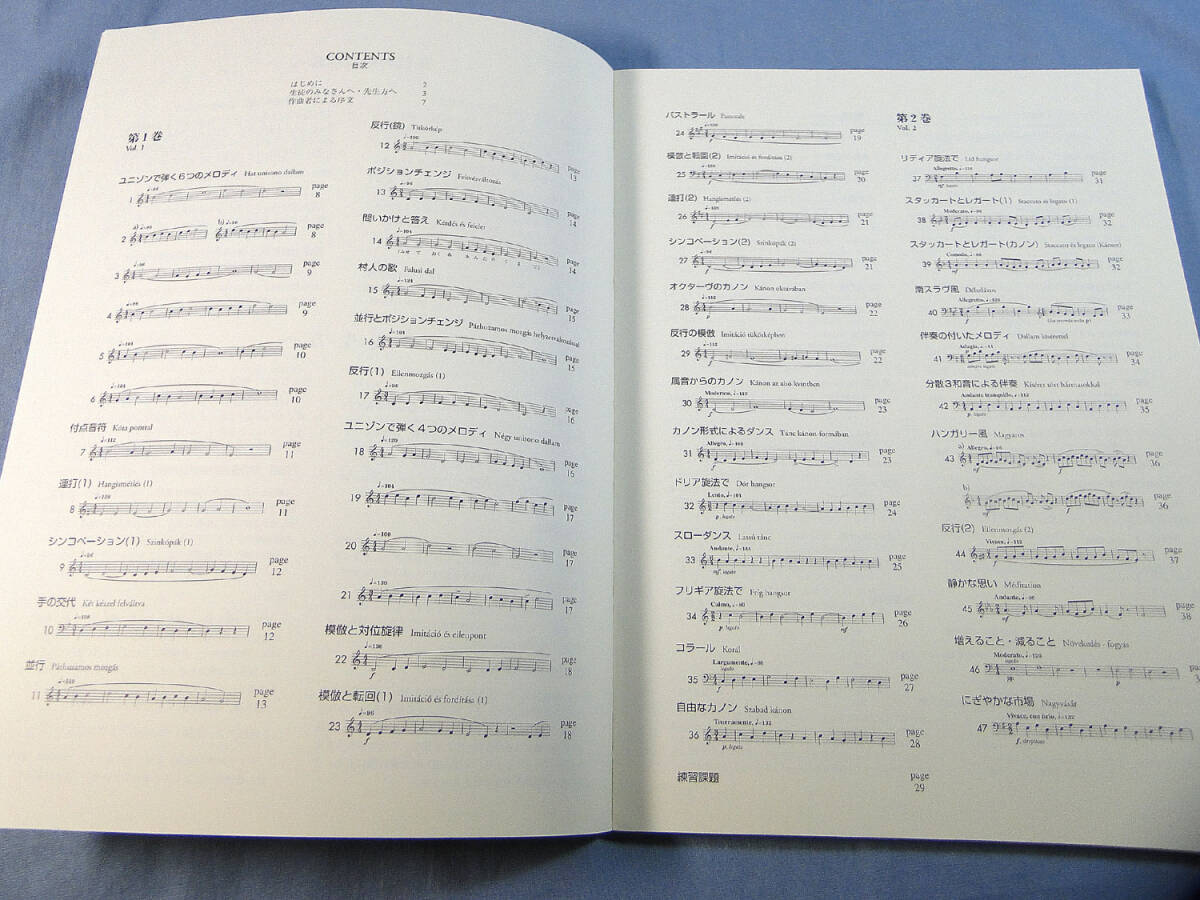 CONTENTS
目次
はじめに 2
生徒のみなさんへ・先生方へ 3
作曲者による序文 7
第1巻
Vol. 1
ユニゾンで弾く6つのメロディ Hat unisono dallam
1 page 8
2 a) b) page 8
3 page 9
4 page 9
5 page 10
6 page 10
付点音符 Kóta ponttal
7 page 11
連打(1) Hangismétlés (1)
8 page 11
シンコペーション(1) Szinkópák (1)
9 page 12
手の交代 Két kézzel felváltva
10 page 12
並行 Párhuzamos mozgás
11 page 13
反行(鏡) Tükörkép
12 page 13
ポジションチェンジ Fekvésváltozás
13 page 14
問いかけと答え Kérdés és felelet
14 page 14
村人の歌 Falusi dal
15 page 15
並行とポジションチェンジ Párhuzamos mozgás helyzetváltozással
16 page 15
反行(1) Ellenmozgás (1)
17 page 16
ユニゾンで弾く4つのメロディ Négy unisono dallam
18 page 16
19 page 17
20 page 17
21 page 17
模倣と対位旋律 Imitáció és ellenpont
22 page 18
模倣と転回(1) Imitáció és fordítása (1)
23 page 18
パストラール Pastorale
24 page 19
模倣と転回(2) Imitáció és fordítása (2)
25 page 20
連打(2) Hangismétlés (2)
26 page 21
シンコペーション(2) Szinkópák (2)
27 page 21
オクターヴのカノン Kánon oktávában
28 page 22
反行の模倣 Imitáció tükörképben
29 page 22
属音からのカノン Kánon az alsó kvintben
30 Moderato page 23
カノン形式によるダンス Tánc kánon-formában
31 Allegro page 23
ドリア旋法で Dór hangsor
32 Lento page 24
スローダンス Lassú tánc
33 Andante page 25
フリギア旋法で Fríg hangsor
34 Calmo page 26
コラール Korál
35 Largamente page 27
自由なカノン Szabad kánon
36 Teneramente page 28
練習課題 page 29
第2巻
Vol. 2
リディア旋法で Líd hangsor
37 Allegretto page 31
スタッカートとレガート(1) Staccato és legato (1)
38 Moderato page 32
スタッカートとレガート(カノン) Staccato és legato (Kánon)
39 Comodo page 32
南スラヴ風 Délszlávos
40 Allegretto page 33
伴奏の付いたメロディ Dallam kísérettel
41 Adagio page 34
分散3和音による伴奏 Kíséret tört hármasokkal
42 Andante tranquillo page 35
ハンガリー風 Magyaros
43 a) Allegro page 36
b) page 36
反行(2) Ellenmozgás (2)
44 Vivace page 37
静かな思い Méditation
45 Andante page 38
増えること・減ること Növekedés - fogyás
46 Moderato
にぎやかな市場 Nagyvásár
47 Vivace, con brio